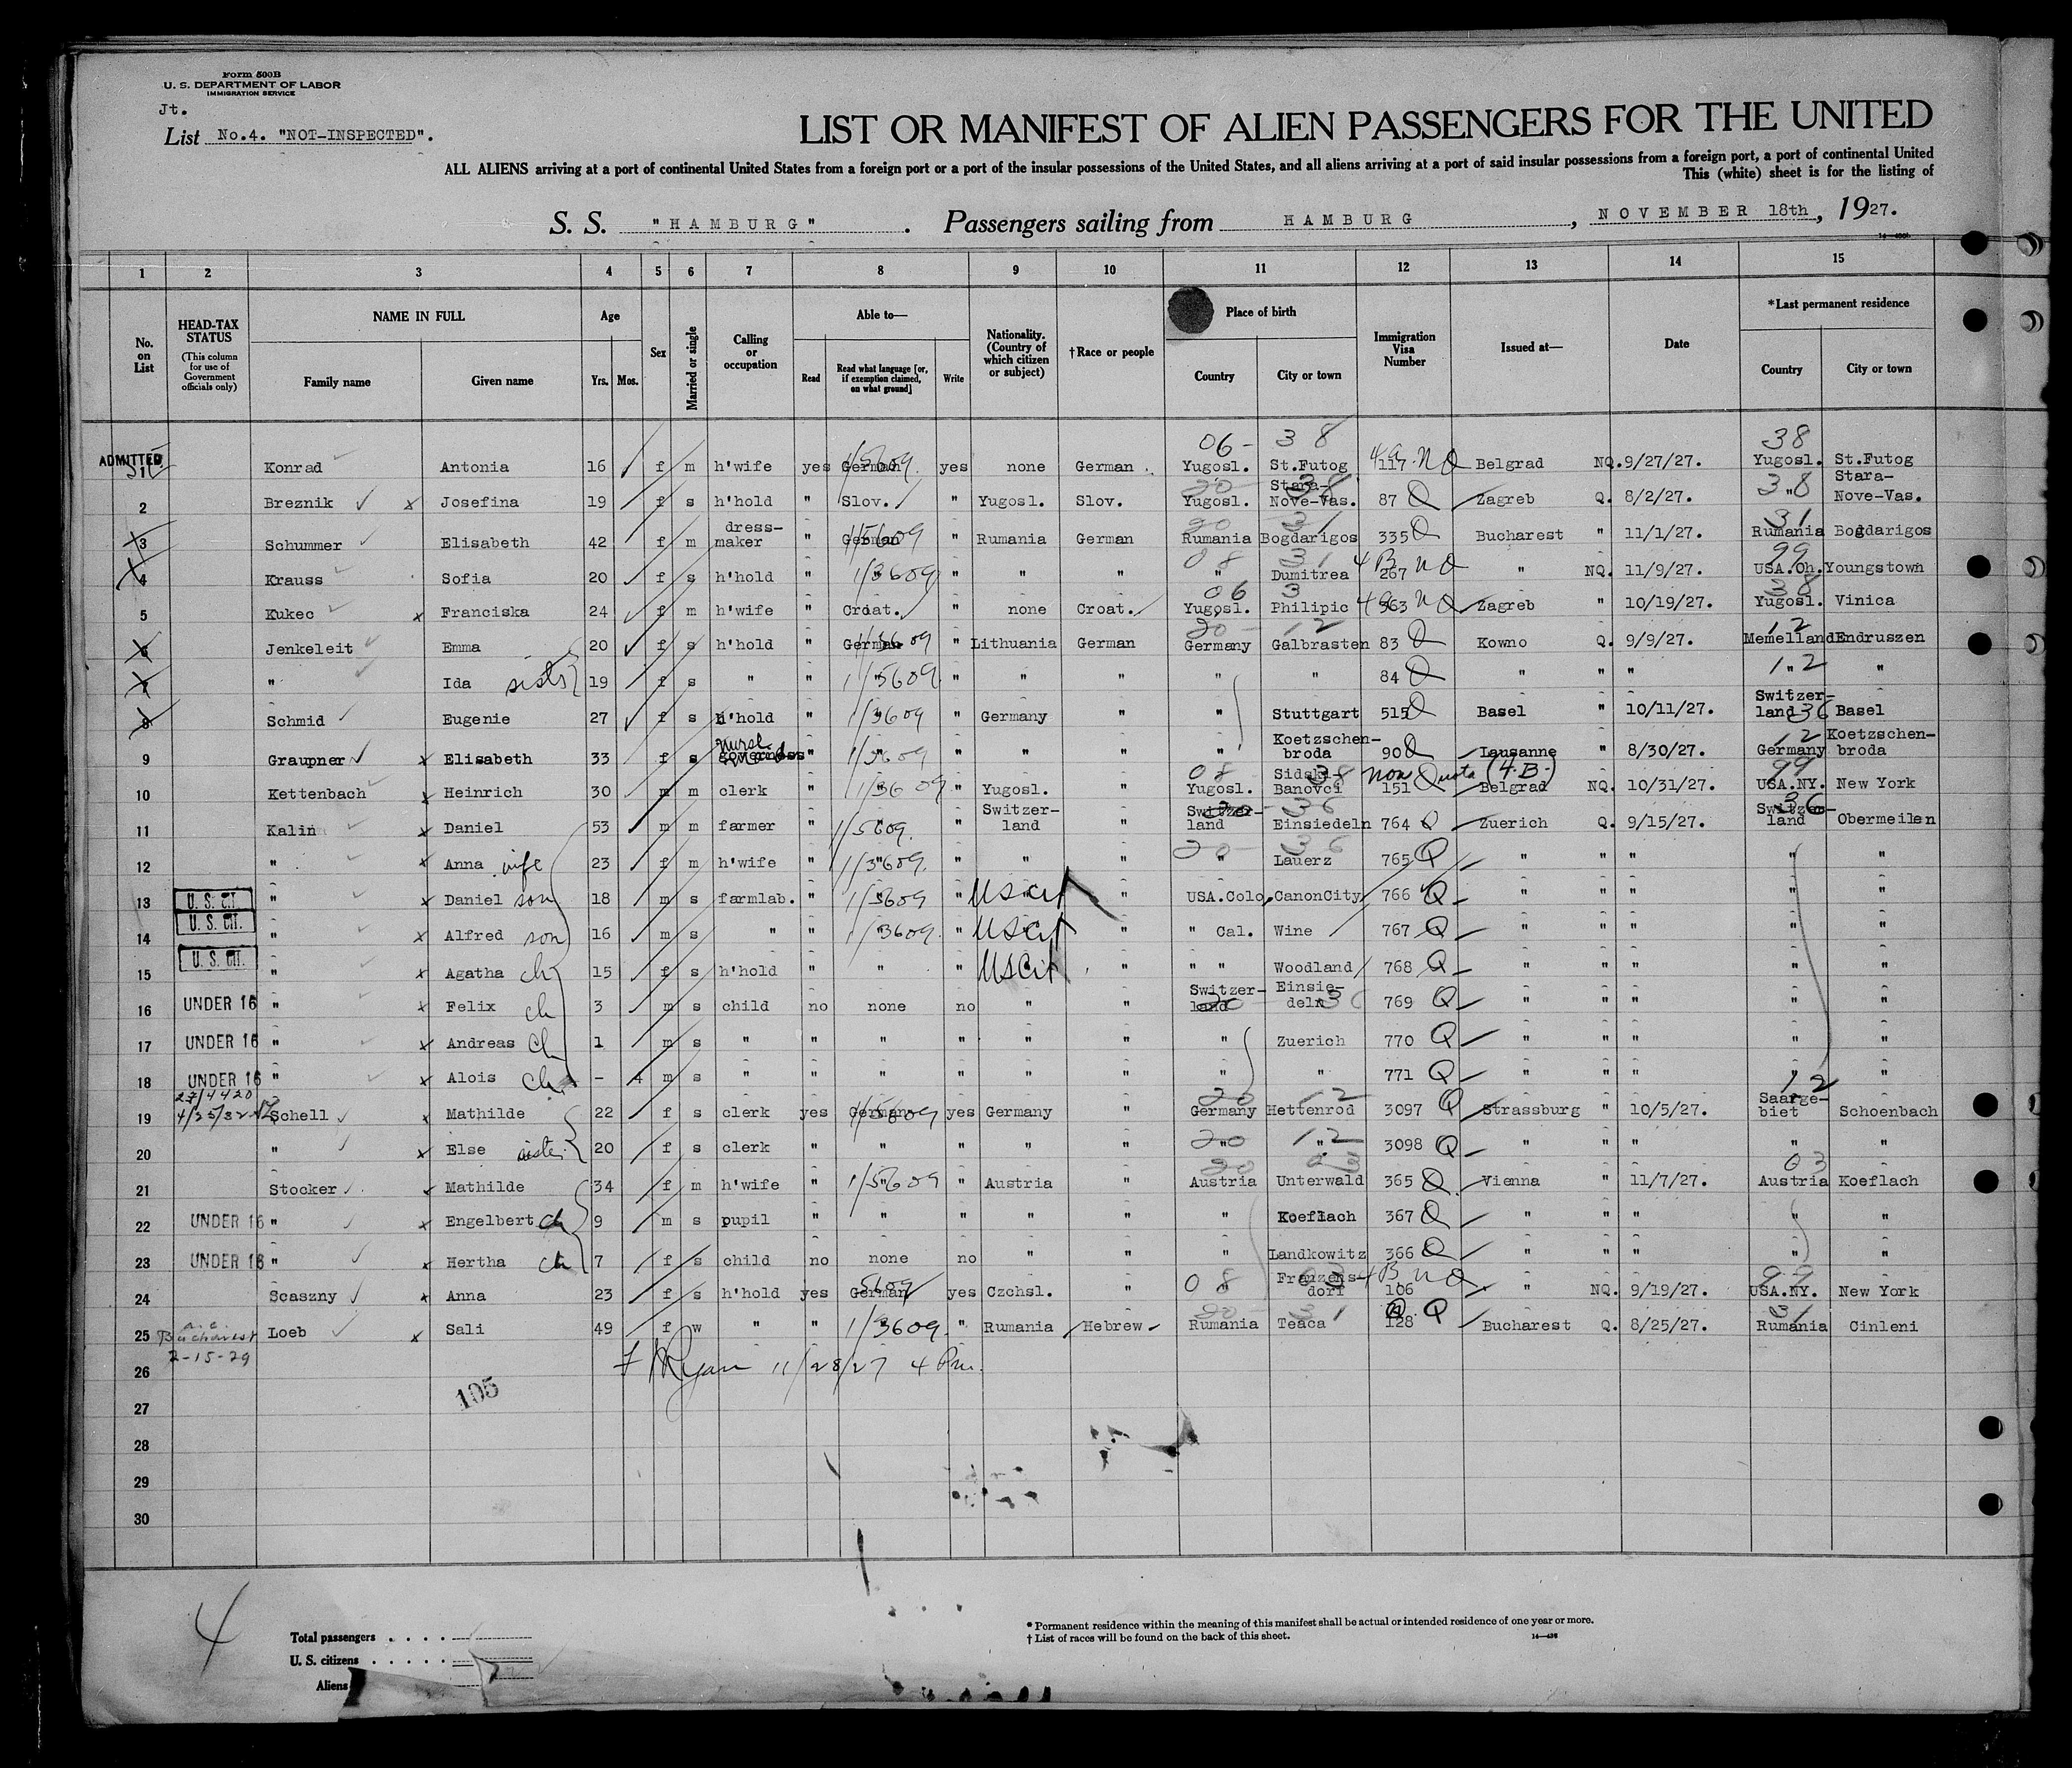 Form 500B
U. S. DEPARTMENT OF LABOR
IMMIGRATION SERVICE
Jt.
List No.4. "NOT-INSPECTED".
LIST OR MANIFEST OF ALIEN PASSENGERS FOR THE UNITED
ALL ALIENS arriving at a port of continental United States from a foreign port or a port of the insular possessions of the United States, and all aliens arriving at a port of said insular possessions from a foreign port, a port of continental United
This (white) sheet is for the listing of
S. S. "HAMBURG". Passengers sailing from HAMBURG, NOVEMBER 18th, 1927.
1 2 3 4 5 6 7 8 9 10 11 12 13 14 15
No. on List
HEAD-TAX STATUS (This column for use of Government officials only)
NAME IN FULL
Family name Given name
Age
Yrs. Mos.
Sex
Married or single
Calling or occupation
Able to—
Read Read what language [or, if exemption claimed, on what ground] Write
Nationality. (Country of which citizen or subject)
†Race or people
Place of birth
Country City or town
Immigration Visa Number
Issued at—
Date
*Last permanent residence
Country City or town
06- 38 38
ADMITTED 1 Konrad Antonia 16 f m h'wife yes German yes none German Yugosl. St.Futog 117 NQ Belgrad NQ. 9/27/27. Yugosl. St.Futog
2 Breznik x Josefina 19 f s h'hold " Slov. " Yugosl. Slov. Yugosl. Stara-Nove-Vas. 87 Q Zagreb Q. 8/2/27. " Stara-Nove-Vas.
3 Schummer Elisabeth 42 f m dress-maker " German " Rumania German Rumania Bogdarigos 335 Q Bucharest " 11/1/27. Rumania Bogdarigos
4 Krauss Sofia 20 f s h'hold " " " " " " Dumitrea 267 4B NQ " NQ. 11/9/27. USA.Oh. Youngstown
5 Kukec x Franciska 24 f m h'wife " Croat. " none Croat. Yugosl. Philipic 363 NQ Zagreb " 10/19/27. Yugosl. Vinica
6 Jenkeleit Emma 20 f s h'hold " German " Lithuania German Germany Galbrasten 83 Q Kowno Q. 9/9/27. Memelland Endruszen
7 " Ida sists 19 f s " " " " " " " " 84 Q " " " " "
8 Schmid Eugenie 27 f s h'hold " " " Germany " " Stuttgart 515 Q Basel " 10/11/27. Switzer-land Basel
9 Graupner x Elisabeth 33 f s nurse governess " " " " " " Koetzschen-broda 90 Q Lausanne " 8/30/27. Germany Koetzschen-broda
10 Kettenbach x Heinrich 30 m m clerk " " " Yugosl. " Yugosl. Sidski-Banovci Non Quota (4.B.) 151 Belgrad NQ. 10/31/27. USA.NY. New York
11 Kalin x Daniel 53 m m farmer " " " Switzer-land " Switzer-land Einsiedeln 764 Q Zuerich Q. 9/15/27. Switzer-land Obermeilen
12 " x Anna wife 23 f m h'wife " " " " " " Lauerz 765 Q " " " " "
13 U. S. CIT. " x Daniel son 18 m s farmlab. " " " US Cit " USA.Colo. CanonCity 766 Q " " " " "
14 U. S. CIT. " x Alfred son 16 m s " " " " US Cit " " Cal. Wine 767 Q " " " " "
15 U. S. CIT. " x Agatha ch 15 f s h'hold " " " US Cit " " " Woodland 768 Q " " " " "
16 UNDER 16 " x Felix ch 3 m s child no none no " " Switzer-land Einsie-deln 769 Q " " " " "
17 UNDER 16 " x Andreas ch 1 m s " " " " " " " Zuerich 770 Q " " " " "
18 UNDER 16 " x Alois ch - 4 m s " " " " " " " " 771 Q " " " " "
27/4420
4/25/32
19 Schell x Mathilde 22 f s clerk yes German yes Germany " Germany Hettenrod 3097 Q Strassburg " 10/5/27. Saarge-biet Schoenbach
20 " x Else sister 20 f s clerk " " " " " " " 3098 Q " " " " "
21 Stocker x Mathilde 34 f m h'wife " " " Austria " Austria Unterwald 365 Q Vienna " 11/7/27. Austria Koeflach
22 UNDER 16 " x Engelbert ch 9 m s pupil " " " " " " Koeflach 367 Q " " " " "
23 UNDER 16 " x Hertha ch 7 f s child no none no " " " Landkowitz 366 Q " " " " "
24 Scaszny x Anna 23 f s h'hold yes German yes Czchsl. " " Franzens-dorf 106 4B NQ " NQ. 9/19/27. USA.NY. New York
25 Bucharest 2-15-29 Loeb x Sali 49 f w " " " " Rumania Hebrew Rumania Teaca 128 Q Bucharest Q. 8/25/27. Rumania Cinleni
26 Ryan 11/28/27 4 Pm.
105
27
28
29
30
4
Total passengers
U. S. citizens
Aliens
* Permanent residence within the meaning of this manifest shall be actual or intended residence of one year or more.
† List of races will be found on the back of this sheet.